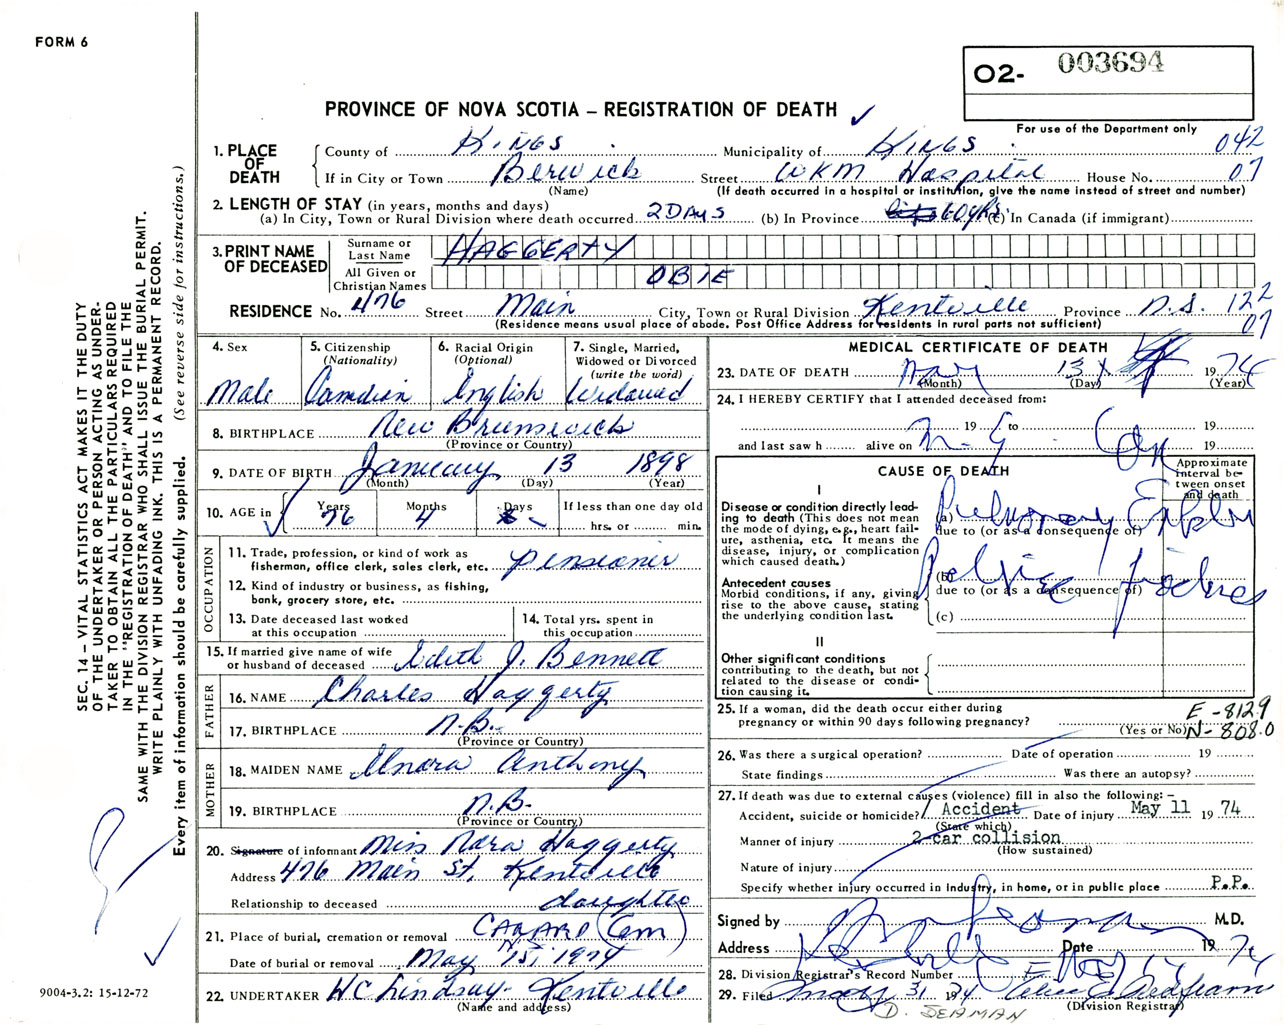 FORM 6
O2- 003694
PROVINCE OF NOVA SCOTIA – REGISTRATION OF DEATH
For use of the Department only
1. PLACE OF DEATH
County of Kings Municipality of Kings 042
If in City or Town Berwick Street WKM Hospital House No. 07
(Name) (If death occurred in a hospital or institution, give the name instead of street and number)
2. LENGTH OF STAY (in years, months and days)
(a) In City, Town or Rural Division where death occurred 2 DAYS (b) In Province 60 yrs. (c) In Canada (if immigrant)
3. PRINT NAME OF DECEASED
Surname or Last Name HAGGERTY
All Given or Christian Names OBIE
RESIDENCE No. 476 Street Main City, Town or Rural Division Kentville Province N.S. 122
(Residence means usual place of abode. Post Office Address for residents in rural parts not sufficient) 07
4. Sex
Male
5. Citizenship
(Nationality)
Canadian
6. Racial Origin
(Optional)
English
7. Single, Married,
Widowed or Divorced
(write the word)
Widowed
8. BIRTHPLACE New Brunswick
(Province or Country)
9. DATE OF BIRTH January 13 1898
(Month) (Day) (Year)
10. AGE in Years 76 Months 4 Days
If less than one day old
hrs. or min.
OCCUPATION
11. Trade, profession, or kind of work as
fisherman, office clerk, sales clerk, etc. Pensioner
12. Kind of industry or business, as fishing,
bank, grocery store, etc.
13. Date deceased last worked
at this occupation
14. Total yrs. spent in
this occupation
15. If married give name of wife
or husband of deceased Edith J. Bennett
FATHER
16. NAME Charles Haggerty
17. BIRTHPLACE N.B.
(Province or Country)
MOTHER
18. MAIDEN NAME Anthony
19. BIRTHPLACE N.B.
(Province or Country)
20. Signature of informant Miss Nora Haggerty
Address 476 Main St. Kentville
Relationship to deceased daughter
21. Place of burial, cremation or removal CANARD (Cem)
N.S.
Date of burial or removal May 15, 1974
22. UNDERTAKER WC Lindsay Kentville
(Name and address)
MEDICAL CERTIFICATE OF DEATH
23. DATE OF DEATH May 13 1974
(Month) (Day) (Year)
24. I HEREBY CERTIFY that I attended deceased from:
19 to 19
and last saw h alive on 19
CAUSE OF DEATH
Approximate
interval be-
tween onset
and death
I
Disease or condition directly lead-
ing to death (This does not mean
the mode of dying, e.g., heart fail-
ure, asthenia, etc. It means the
disease, injury, or complication
which caused death.)
(a) Pulmonary
due to (or as a consequence of)
Antecedent causes
Morbid conditions, if any, giving
rise to the above cause, stating
the underlying condition last.
(b) Pelvic
due to (or as a consequence of)
(c)
II
Other significant conditions
contributing to the death, but not
related to the disease or condi-
tion causing it.
25. If a woman, did the death occur either during
pregnancy or within 90 days following pregnancy?
(Yes or No)
E - 812.9
N - 808.0
26. Was there a surgical operation? Date of operation 19
State findings Was there an autopsy?
27. If death was due to external causes (violence) fill in also the following: –
Accident, suicide or homicide? Accident Date of injury May 11 19 74
(State which)
Manner of injury 2-car collision
(How sustained)
Nature of injury
Specify whether injury occurred in industry, in home, or in public place P.P.
Signed by M.D.
Address Date 19 74
28. Division Registrar's Record Number
29. Filed May 31 1974
(Division Registrar)
D. SEAMAN
SEC. 14 – VITAL STATISTICS ACT MAKES IT THE DUTY
OF THE UNDERTAKER OR PERSON ACTING AS UNDER-
TAKER TO OBTAIN ALL THE PARTICULARS REQUIRED
IN THE "REGISTRATION OF DEATH" AND TO FILE THE
SAME WITH THE DIVISION REGISTRAR WHO SHALL ISSUE THE BURIAL PERMIT.
WRITE PLAINLY WITH UNFADING INK. THIS IS A PERMANENT RECORD.
Every item of information should be carefully supplied. (See reverse side for instructions.)
9004-3.2: 15-12-72